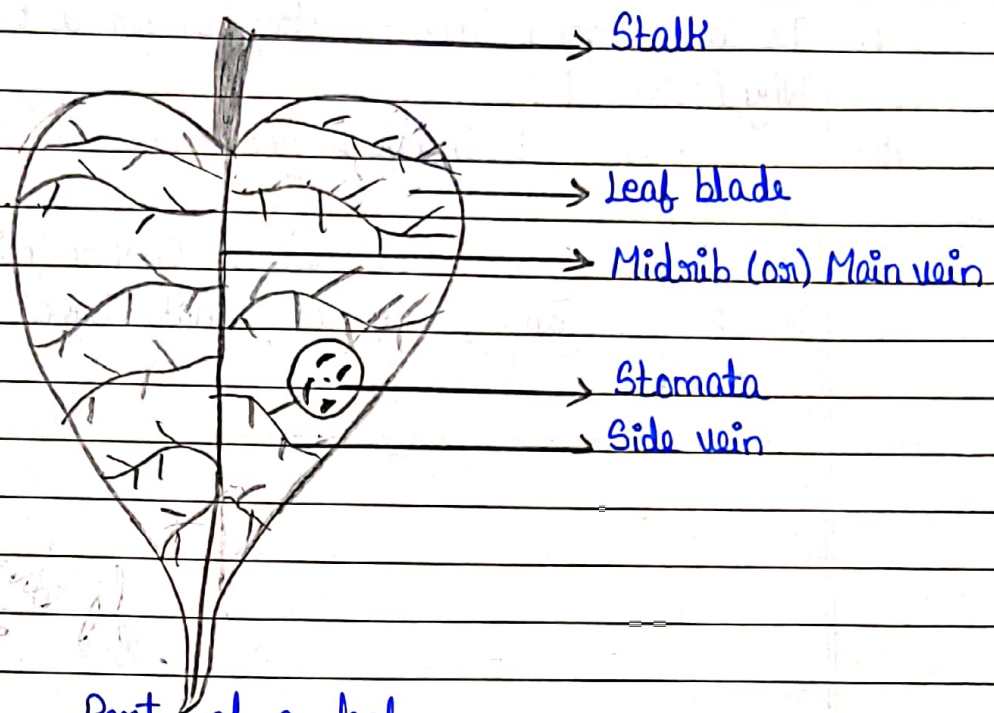 Stalk
Leaf blade
Midrib (or) Main vein
Stomata
Side vein